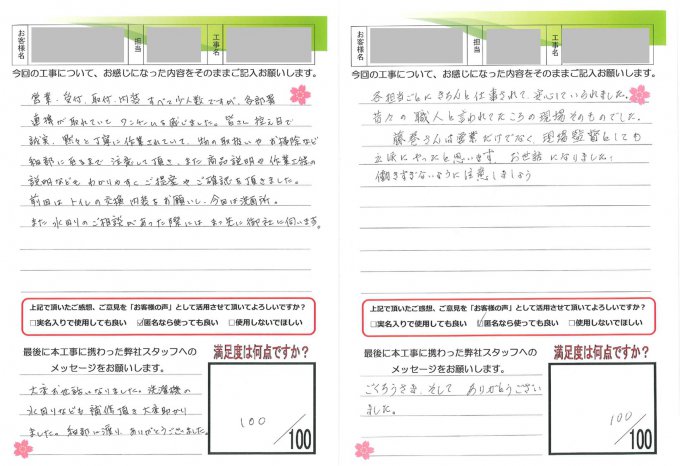 お客様名
担当
工事名
今回の工事について、お感じになった内容をそのままご記入お願いします。
営業、受付、取付、内装 すべて少人数ですが、各部署
連携が取れていて ワンチームを感じました。皆さん 控え目で
誠実、黙々と丁寧に作業されていて、物の取扱いやお掃除など
細部に目をまで 注意して頂き、また商品説明や作業工程の
説明なども わかりやすく ご提案や ご確認を頂きました。
前回は トイレの交換 内装をお願いし、今回は洗面所。
また 水回りのご相談があった際には まず先に御社に伺います。
上記で頂いたご感想、ご意見を「お客様の声」として活用させて頂いてよろしいですか？
□実名入りで使用しても良い ☑匿名なら使っても良い □使用しないでほしい
最後に本工事に携わった弊社スタッフへの
メッセージをお願いします。
大変お世話になりました。洗濯機の
水回りなども 補修頂き 大変助かり
ました。細部に渡り、ありがとうございました。
満足度は何点ですか？
100
/100
お客様名
担当
工事名
今回の工事について、お感じになった内容をそのままご記入お願いします。
各担当ごとにきちんと仕事されて、安心していられました。
昔々の 職人と言われてたころの現場そのものでした。
藤巻さんは営業だけでなく、現場監督としても
立派にやったと思います。 お世話になりました。
働きすぎないように注意しましょう
上記で頂いたご感想、ご意見を「お客様の声」として活用させて頂いてよろしいですか？
□実名入りで使用しても良い ☑匿名なら使っても良い □使用しないでほしい
最後に本工事に携わった弊社スタッフへの
メッセージをお願いします。
ごくろうさま、そして ありがとうござい
ました。
満足度は何点ですか？
100
/100